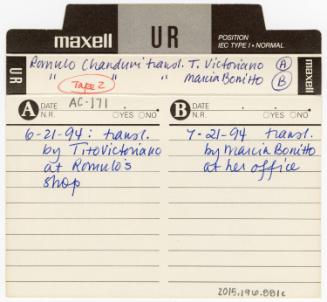 maxell UR POSITION
IEC TYPE I • NORMAL
UR
Romulo Chanduri transl. T. Victoriano A
" " " Marcia Bonitto B
Tape 2
A DATE AC-171
N.R. YES NO
B DATE
N.R. YES NO
6-21-94: transl.
by Tito Victoriano
at Romulo's
shop
7-21-94 transl.
by Marcia Bonitto
at her office
2015.196.881c